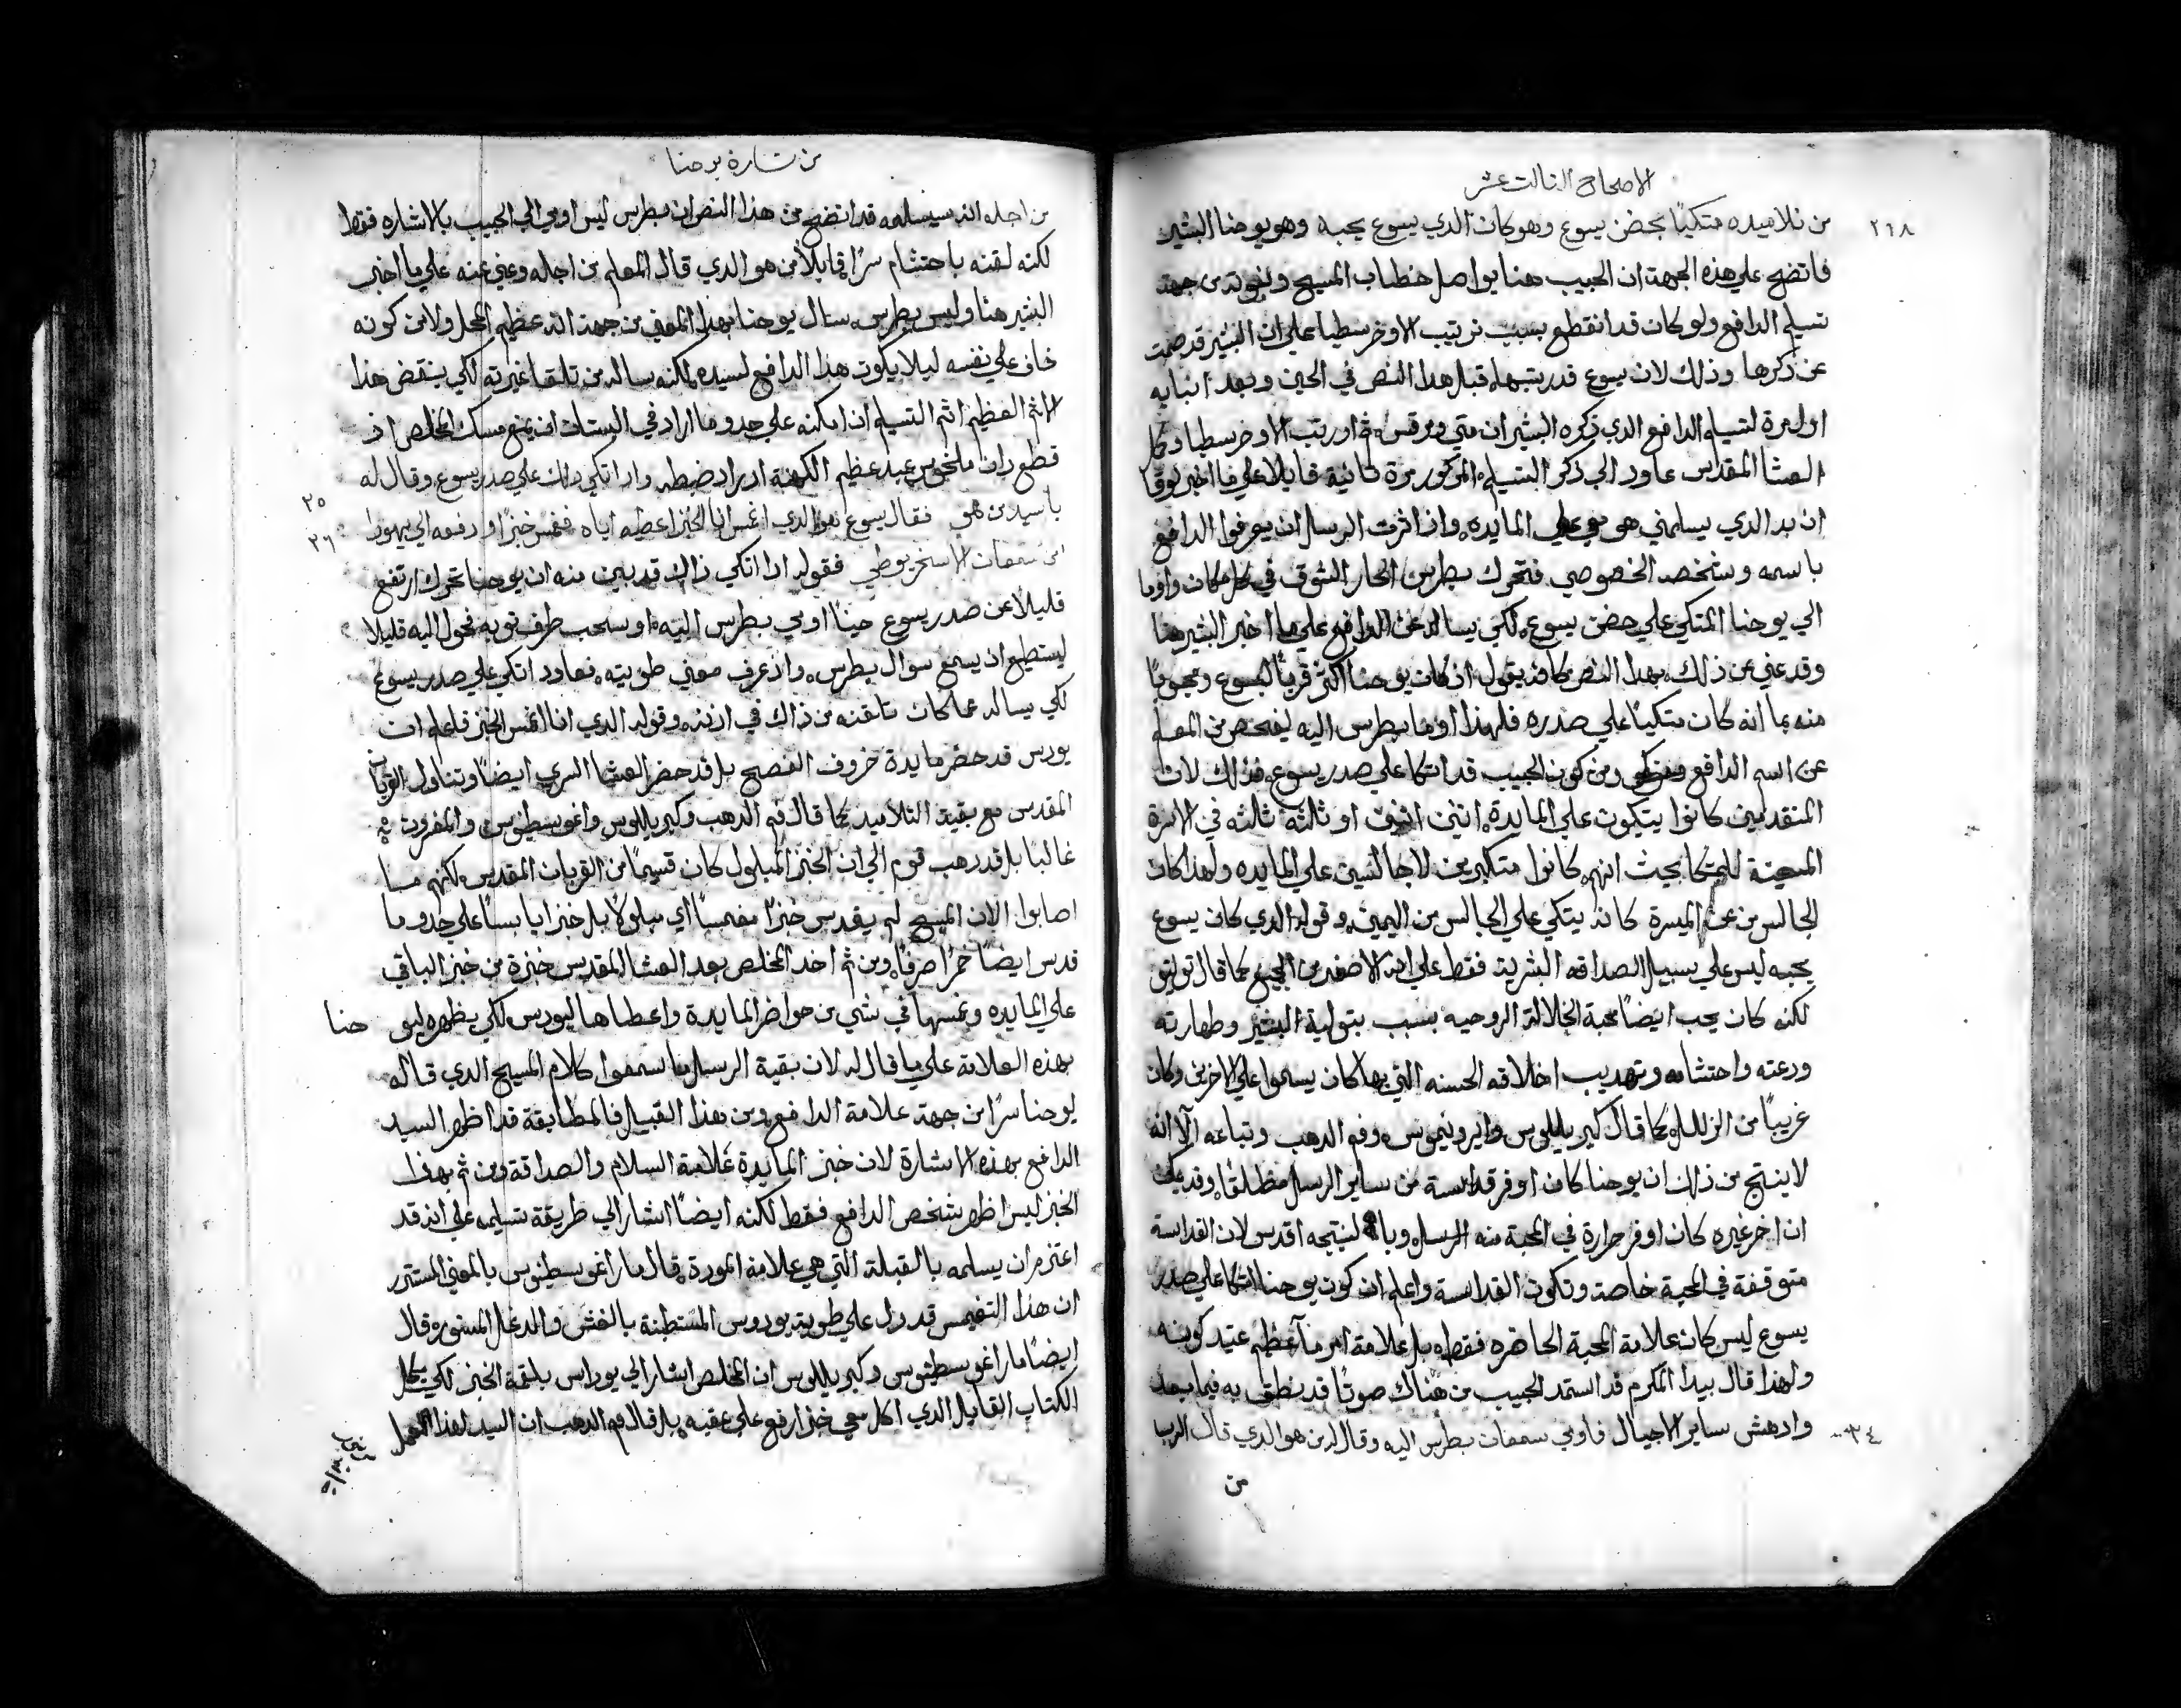 الاصحاح الثالث عشر
٢١٨
من تلاميده متكيًا بحضن يسوع وهو كان الدي يسوع يحبه وهو يوحنا البشير
فاتضح علي هذه الجهة ان الحبيب هنا يواصل خطاب المسيح من جهة
تسليم الدافع ولو كان قد انقطع بسبب ترتيب الاوخرسطيا علي ان البشير قد صمت
عن ذكرها وذلك لان يسوع قد رتبها قبل هذا النص في الحين وبعد انبايه
اول مرة لتسليم الدافع الدي ذكره البشيران متي ومرقس ثم اورتب الاوخرسطيا وكل
العشا المقدس عاود الي ذكر التسليم المركور مرة تانية قايلا علي ما اخبر لوقا
ان يد الدي يسلمني هي معي علي المايده واذ اثرت الرسل ان يعرفوا الدافع
باسمه وشخصه الخصوصي فتحرك بطرس الحار الشوق في كل مكان واوما
الي يوحنا المتكي علي حضن يسوع لكي يساله عن الدافع علي ما اخبر البشير هنا
وقد عني عن ذلك بهدا النص كانه يقول اذ كان يوحنا اكثر قربا ليسوع ومحبوبًا
منه بما انه كان متكيًا علي صدره فلهذا اوما بطرس اليه ليفحص من المعلم
عن اسم الدافع ومن كون الحبيب قد اتكا علي صدر يسوع فذلك لان
المتقدمين كانوا يتكيون علي المايدة اتنين اتنين او ثلثه ثلثه في الاسرة
المعينة للمتكا بحيث انهم كانوا متكيين لا جالسين علي المايده ولهذا كان
الجالس من عن الميسرة كانه يتكي علي الجالس من اليمين وقوله الدي كان يسوع
يحبه ليس علي سبيل الصداقه البشرية فقط علي انه الاصغر من الجميع كما قال
لكنه كان يحب ايضًا محبة الروحيه بسبب بتولية البشير وطهارته
ودعته واحتشامه وتهديب اخلاقه الحسنه التي بها كان يسموا علي الاخرين وكان
غريبًا من الزلل كما قال كيريللوس وايرونيموس وفم الدهب وتباعه الا انه
لا ينتج من ذلك ان يوحنا كان اوفر قداسة من ساير الرسل مطلقًا وقد يمكن
ان اخر غيره كان اوفر حرارة في المحبة منه لان القداسة
متوقفة في المحبة خاصة وتكون القداسة واعلم ان كون يوحنا اتكا علي صدر
يسوع ليس كان علامة المحبة الحاضره فقط بل علامة امر ما اعظم عتيد كونه
ولهذا قال بيدا المكرم قد استمد الحبيب من هناك صوتًا قد ينطق به فيما بعد
وادهش ساير الاجيال فاومي سمعان بطرس اليه وقال له من هو الدي قال الرب
٢٤
من
من بشارة يوحنا
من اجله انه سيسلمه قد اتضح من هذا النص ان بطرس ليس اومي الي الحبيب بالاشاره فقط
لكنه لقنه باحتشام سرًا قايلًا من هو الدي قال المعلم من اجله وعني عنه علي ما اخبر
البشير هنا وليس بطرس سال يوحنا بهذا المعني من جهة انه عظيم المحل ولا من كونه
خاف علي نفسه ليلا يكون هذا الدافع لسيده لكنه ساله من تلقا غيرته لكي ينقض هذا
الاثم العظيم اثم التسليم ان امكنه علي حدو ما اراد في البستان ان يمنع مسك المخلص اذ
قطع ادن ملخوس عبد عظيم الكهنة اذ اراد ضبطه واذ اتكي ذلك علي صدر يسوع وقال له
٢٥
يا سيد من هو فقال يسوع هو الدي اغمس انا الخبز اعطيه اياه فغمس خبزًا ودفعه الي يهودا
٢٦
ابن سمعان الاسخريوطي فقوله اذا اتكي ذاك قد بين منه ان يوحنا تحرك ارتفع
قليلًا عن صدر يسوع حينًا اومي بطرس اليه او سحب طرف توبه فحول اليه قليلا
ليستطيع ان يسمع سوال بطرس واذ عرف معني طويته فعاود اتكي علي صدر يسوع
لكي يساله عما كان تلقنه من ذاك في اذنه وقوله الدي انا اغمس الخبز فاعلم ان
يودس قد حضر مايدة خروف الفصح بل قد حضر العشا السري ايضًا وتناول القربان
المقدس مع بقية التلاميد كما قال فم الدهب وكيريللوس واغوسطينوس والمفسرون
غالبًا بل قد دهب قوم الي ان الخبز المبلول كان قسيمًا من القربان المقدس لكنهم ما
اصابوا لان المسيح لم يقدس خبزًا مغمسًا اي مبلولًا بل خبزا يابسًا علي حدو ما
قدس ايضًا خمرًا صرفًا ومن ثم اخد المخلص بعد العشا المقدس خبزة من خبز الباقي
علي المايده وغمسها في شي من حواضر المايدة واعطاها ليودس لكي يظهره ليوحنا
بهذه العلامة علي ما قال له لان بقية الرسل ما سمعوا كلام المسيح الدي قاله
ليوحنا سرًا من جهة علامة الدافع ومن هذا القبيل فالمطابقة قد اظهر السيد
الدافع بهذه الاشارة لان خبز المايدة علامة السلام والصداقة ومن ثم بهذا
الخبز ليس اظهر شخص الدافع فقط لكنه ايضًا اشار الي طريقة تسليمه علي انه قد
اعتزم ان يسلمه بالقبلة التي هي علامة المودة قال مار اغوسطينوس بالمعني المستتر
ان هذا التغميس قد دل علي طوية يودس المستبطنة بالغش والدغل قال
ايضًا مار اغوسطينوس وكيريللوس ان المخلص اشار الي يوداس بلقمة الخبز لكي يكمل
الكتاب القايل الدي اكل معي خبز ارفع علي عقبه بل قال فم الدهب ان السيد لهذا